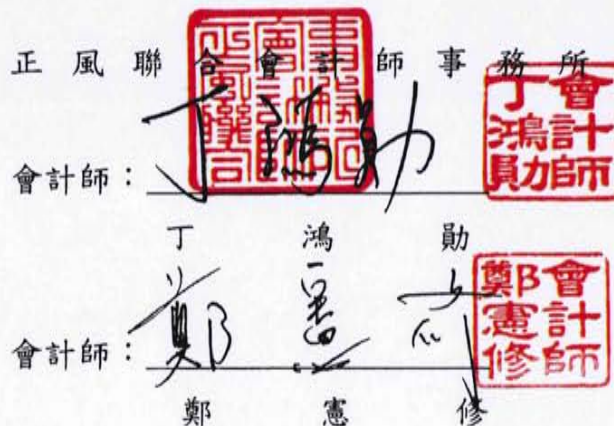 正風聯合會計師事務所
會計師：丁鴻勛
會計師丁鴻勛
丁鴻勛
會計師：鄭憲修
會計師鄭憲修
鄭憲修